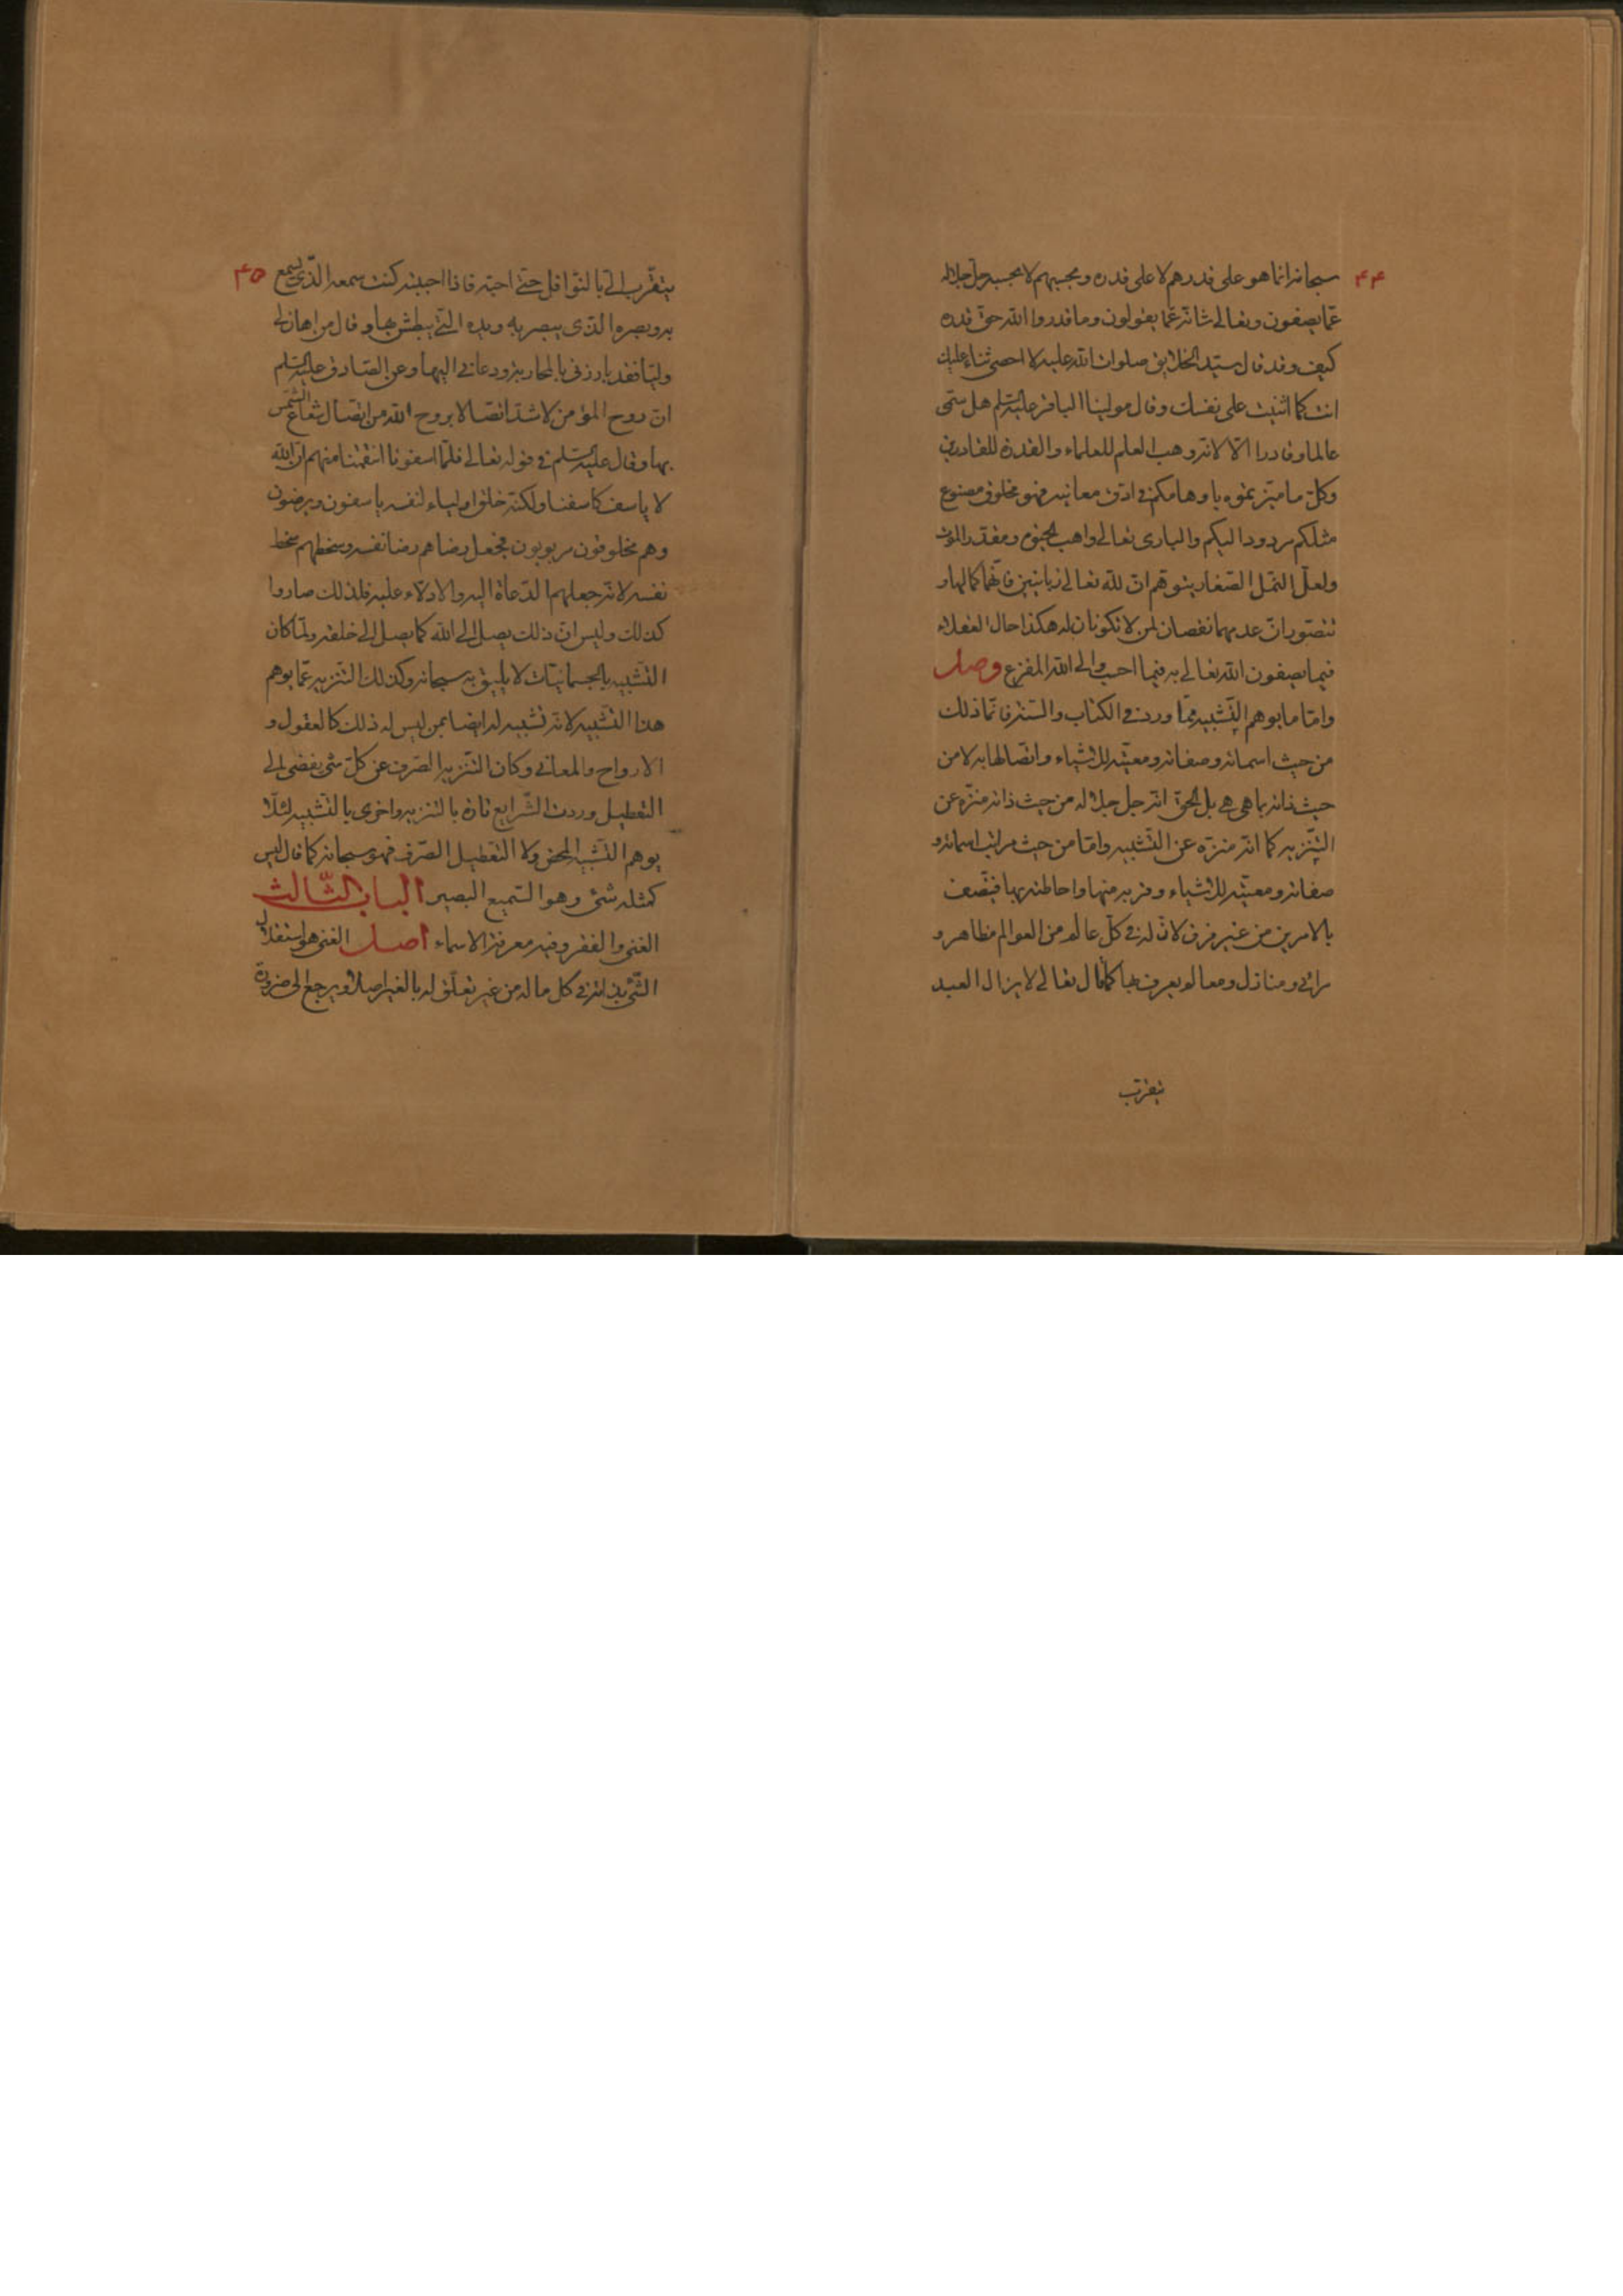 ۴۴
سبحانه انما هو على قدرهم لا على قدره وبحسبهم لا بحسبه جل جلاله
عما يصفون وتعالى شانه عما يقولون وما قدروا الله حق قدره
كيف وقد قال سيد الخلايق صلوات الله عليه لا احصى ثناء عليك
انت كما اثنيت على نفسك وقال مولينا الباقر عليه السلم هل سمى
عالما وقادرا الا لانه وهب العلم للعلماء والقدرة للقادرين
وكل ما ميزتموه باوهامكم في ادق معانيه فهو مخلوق مصنوع
مثلكم مردود اليكم والبارى تعالى واهب الحيوة ومقدر الموت
ولعل النمل الصغار يتوهم ان لله تعالى زبانيتين فانهما كمالها و
تتصور ان عدمهما نقصان لمن لا تكونان له هكذا حال العقلاء
فيما يصفون الله تعالى به فيما احسب والى الله المفزع وصل
واما ما يوهم التشبيه مما وردت في الكتاب والسنة فانما ذلك
من حيث اسمائه وصفاته ومعيته للاشياء واتصالها به لا من
حيث ذاته بما هي هي بل الحق انه جل جلاله من حيث ذاته منزه عن
التنزيه كما انه منزه عن التشبيه واما من حيث مراتب اسمائه و
صفاته ومعيته للاشياء وقربه منها واحاطته بها فيتصف
بالامرين من غير فرق لان له في كل عالم من العوالم مظاهر و
مرائى ومنازل ومعالم يعرف بها كما قال تعالى لا يزال العبد
يتقرب
۴۵
يتقرب الى بالنوافل حتى احبه فاذا احببته كنت سمعه الذى يسمع
به وبصره الذى يبصر به ويده التي يبطش بها وقال من اهان لى
وليا فقد بارزنى بالمحاربة ودعانى اليها وعن الصادق عليه السلم
ان روح المؤمن لاشد اتصالا بروح الله من اتصال شعاع الشمس
بها وقال عليه السلم في قوله تعالى فلما اسفونا انتقمنا منهم ان الله
لا ياسف كاسفنا ولكنه خلق اولياء لنفسه ياسفون ويرضون
وهم مخلوقون مربوبون فجعل رضاهم رضا نفسه وسخطهم سخط
نفسه لانه جعلهم الدعاة اليه والادلاء عليه فلذلك صاروا
كذلك وليس ان ذلك يصل الى الله كما يصل الى خلقه ولما كان
التشبيه بالجسمانيات لا يليق به سبحانه وكذلك التنزيه عما يوهم
هذا التشبيه لانه تشبيه له ايضا بمن ليس له ذلك كالعقول و
الارواح والمعانى وكان التنزيه الصرف عن كل شئ يفضى الى
التعطيل وردت الشرايع تارة بالتنزيه واخرى بالتشبيه لئلا
يوهم التشبيه المحض ولا التعطيل الصرف فهو سبحانه كما قال ليس
كمثله شئ وهو السميع البصير الباب الثالث
الغنى والفقر وفيه معرفة الاسماء اصل الغنى هو استقلال
الشئ بذاته في كل ما له من غير تعلق له بالغير اصلا ويرجع الى ضرورة